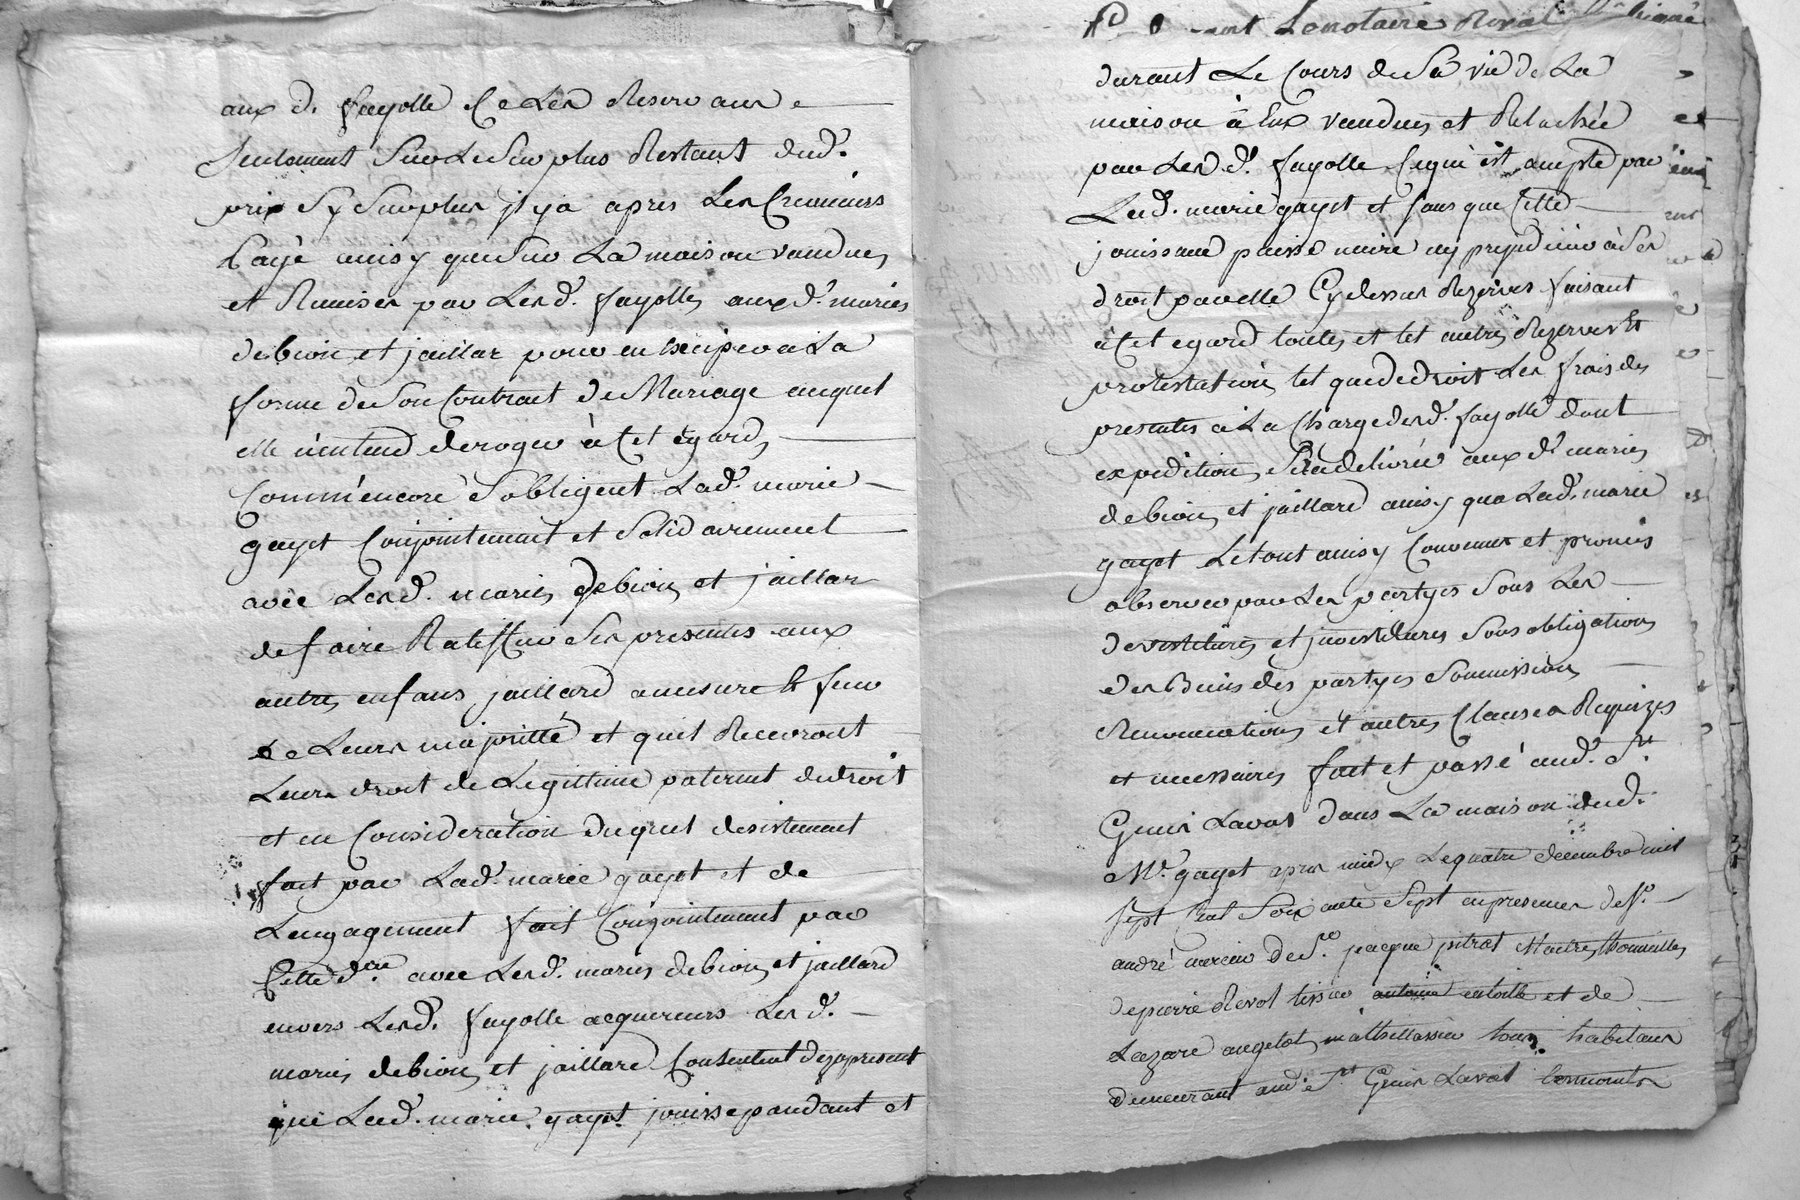 aux d. fayolle Ce Les Reservant
seulement Sur Le Surplus Restant dud.
prix Sy Surplus jl y a apres Les Creanciers
Payé ainsy que Sur La maison vandues
et Remises par Lesd. fayolles aux d. maries
debion et jaillar pour en à La
forme de Son Contrait de Mariage auquel
elle n'entend deroger à Cet egard
Comm'encore S'obligent Lad. marie
gayet Conjointement et Solidairement
avec Lesd. maries debion et jaillar
de faire Ratiffier Ses presentes aux
autres enfans jaillard a mesure et feur
de Leurs majoritté et quil Recevront
Leurs droit de Legittime paternel dudroit
et en Consideration duquel desistement
fait par Lad. marie gayet et de
Lengagement fait Conjointement par
Cette d.ere avec Lesd. maries debion et jaillard
envers Lesd. fayolle acquereurs Les d.
maries debion et jaillard Consentent dezapresent
que Lad. marie gayet jouisse pandant et
Lenotaire Royal
durant Le Cours de Sa vie de La
maison à Eux vandues et Relachée
par Lesd. fayolle Ce qui est accepté par
Lad. marie gayet et sans que Cette
jouissance puisse nuire ny prejudicier à Ses
droit par elle Cydessus Rezerves faisant
à Cet egard toutes et tel autres Rezerves et
protestations tel que de droit Les frais des
presentes à La Charge desd. fayolle dont
expedition Sera delivrée aux d. maries
debion et jaillard ainsy qua Lad. marie
gayet Le tout ainsy Convenu et promis
observer par Les partyes Sous Les
devestitures et jnvestitures Sous obligations
des Biens des partyes Soumissions
Renonciations et autres Clauses Requizes
et necessaires fait et passé aud. St.
Genis Laval dans La maison dud.
Mr. gayet apres midy Le quatre decembre mil
Sept Cent Soixante Sept en presence de Sr.
andré de Sr. jacque pitrat Maitre
de pierre Revol tissier et de
Lazare angelot mathellassier tous habitans
demeurant aud. St Genis Laval temoins